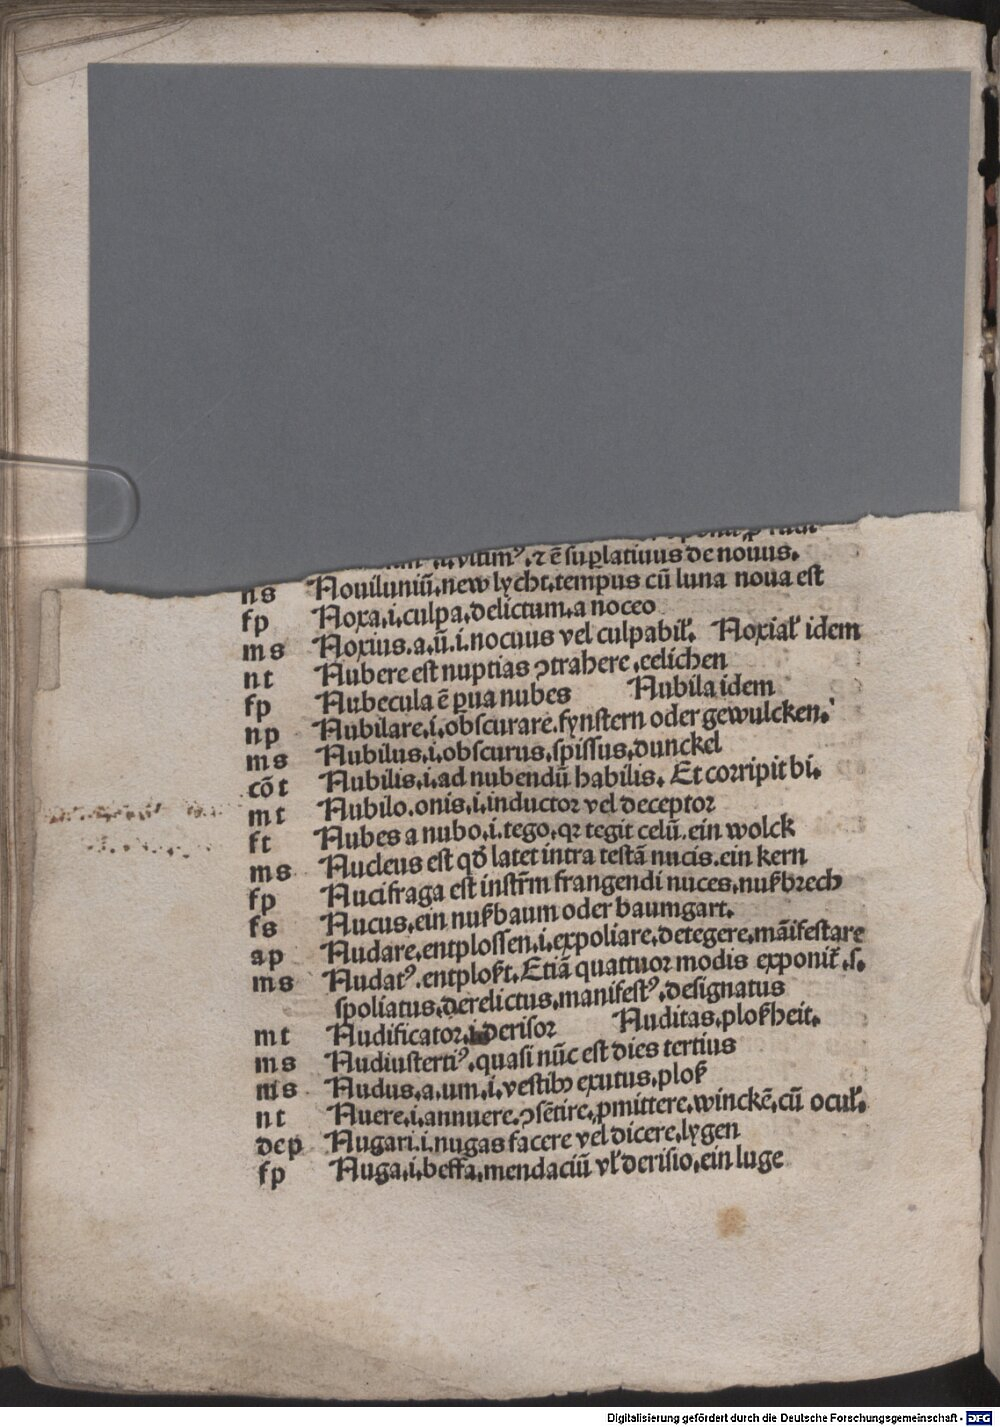 vltimꝰ. ⁊ ē suꝑlatiuus de nouus.
ns Nouiluniū. new lycht. tempus cū luna noua est
fp Noxa. i. culpa. delictum. a noceo
ms Noxius. a. ū. i. nocuus vel culpabił. Noxiał idem
nt Nubere est nuptias ꝯtrahere. eelichen
fp Nubecula ē ꝑua nubes Nubila idem
np Nubilare. i. obscurare. fynstern oder gewulcken.
ms Nubilus. i. obscurus. spissus. dunckel
cōt Nubilis. i. ad nubendū habilis. Et corripit bi.
mt Nubilo. onis. i. inductor vel deceptor
ft Nubes a nubo. i. tego. qꝛ tegit celū. ein wolck
ms Nucleus est qđ latet intra testā nucis. ein kern
fp Nucifraga est instr̄m frangendi nuces. nußbrech
fs Nucus. ein nußbaum oder baumgart.
ap Nudare. entplossen. i. expoliare. detegere. māifestare
ms Nudatꝰ. entploßt. Etiā quattuor modis exponit̄. s.
spoliatus. derelictus. manifestꝰ. designatus
mt Nudificator. i. derisor Nuditas. ploßheit.
ms Nudiustertiꝰ. quasi nūc est dies tertius
ms Nudus. a. um. i. vestibꝫ exutus. ploß
nt Nuere. i. annuere. ꝯsētire. ꝓmittere. winckē. cū ocuł.
dep Nugari. i. nugas facere vel dicere. lygen
fp Nuga. i. beffa. mendaciū vł derisio. ein luge
Digitalisierung gefördert durch die Deutsche Forschungsgemeinschaft - DFG